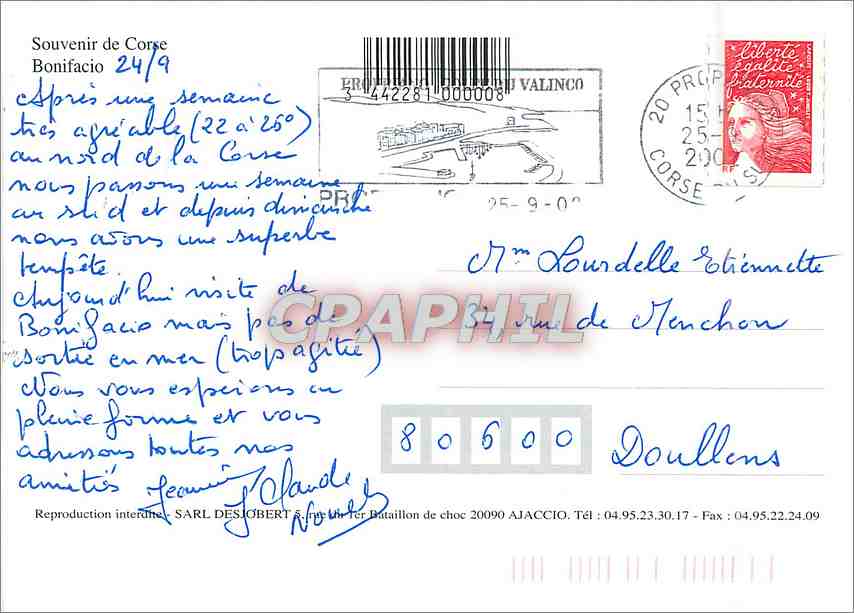 Souvenir de Corse
Bonifacio 24/9
Après une semaine
très agréable (22 à 26°)
au nord de la Corse
nous passons une semaine
au sud et depuis dimanche
nous avons une superbe
tempête.
Aujourd'hui visite de
Bonifacio mais pas de
sortie en mer (trop agitée)
Nous vous espérons en
pleine forme et vous
adressons toutes nos
amitiés
J Claude
3 442281 000008
DU VALINCO
25-9-0
20 PROP
15
25-
200
CORSE DU S
liberté
égalité
fraternité
RF
Mme Lourdelle Etiennette
34, rue de Menchon
80600
Doullens
CPAPHIL
Reproduction interdite - SARL DESJOBERT 5, rue du 1er Bataillon de choc 20090 AJACCIO. Tél : 04.95.23.30.17 - Fax : 04.95.22.24.09